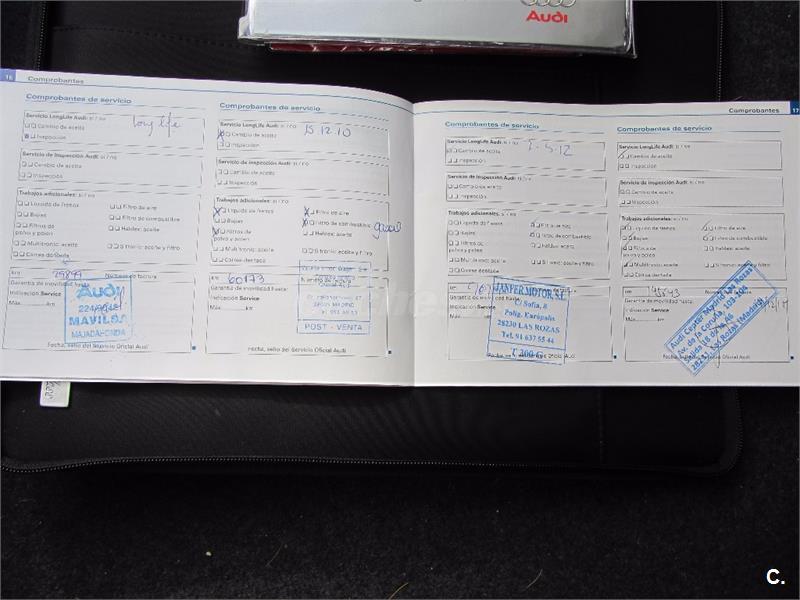 Audi
16 Comprobantes
Comprobantes de servicio
Servicio LongLife Audi: sí / no
Cambio de aceite
long life
Inspección
Servicio de Inspección Audi: sí / no
Cambio de aceite
Inspección
Trabajos adicionales: sí / no
Líquido de frenos
Filtro de aire
Bujías
Filtro de combustible
Filtros de polvo y polen
Haldex: aceite
Multitronic: aceite
S tronic: aceite y filtro
Correa dentada
km 29899
Número de factura
Garantía de movilidad hasta:
Indicación Service
Máx. km
Audi
MAVILSA
MAJADAHONDA
Fecha, sello del Servicio Oficial Audi
Comprobantes de servicio
Servicio LongLife Audi: sí / no
Cambio de aceite
15.12.10
Inspección
Servicio de Inspección Audi: sí / no
Cambio de aceite
Inspección
Trabajos adicionales: sí / no
Líquido de frenos
Filtro de aire
Bujías
Filtro de combustible
Filtros de polvo y polen
Haldex: aceite
Multitronic: aceite
S tronic: aceite y filtro
Correa dentada
km 60173
Número de factura
Garantía de movilidad hasta:
Indicación Service
Máx. km
POST - VENTA
Fecha, sello del Servicio Oficial Audi
Comprobantes 17
Comprobantes de servicio
Servicio LongLife Audi: sí / no
Cambio de aceite
Inspección
Servicio de Inspección Audi: sí / no
Cambio de aceite
Inspección
Trabajos adicionales: sí / no
Líquido de frenos
Filtro de aire
Bujías
Filtro de combustible
Filtros de polvo y polen
Haldex: aceite
Multitronic: aceite
S tronic: aceite y filtro
Correa dentada
km
Garantía de movilidad hasta:
Indicación Service
Máx. km
JANFER MOTOR, S.L.
C/ Sofía, 8
Polig. Európolis
28230 LAS ROZAS
Tel. 91 637 55 44
Oficial Audi
Comprobantes de servicio
Servicio LongLife Audi: sí / no
Cambio de aceite
Inspección
Servicio de Inspección Audi: sí / no
Cambio de aceite
Inspección
Trabajos adicionales: sí / no
Líquido de frenos
Filtro de aire
Bujías
Filtro de combustible
Filtros de polvo y polen
Haldex: aceite
Multitronic: aceite
S tronic: aceite y filtro
Correa dentada
km
Garantía de movilidad hasta:
Indicación Service
Máx. km
Audi Center Madrid Las Rozas
Av. de la Coruña,
Las Rozas (Madrid)
Fecha, sello del Servicio Oficial Audi
C.